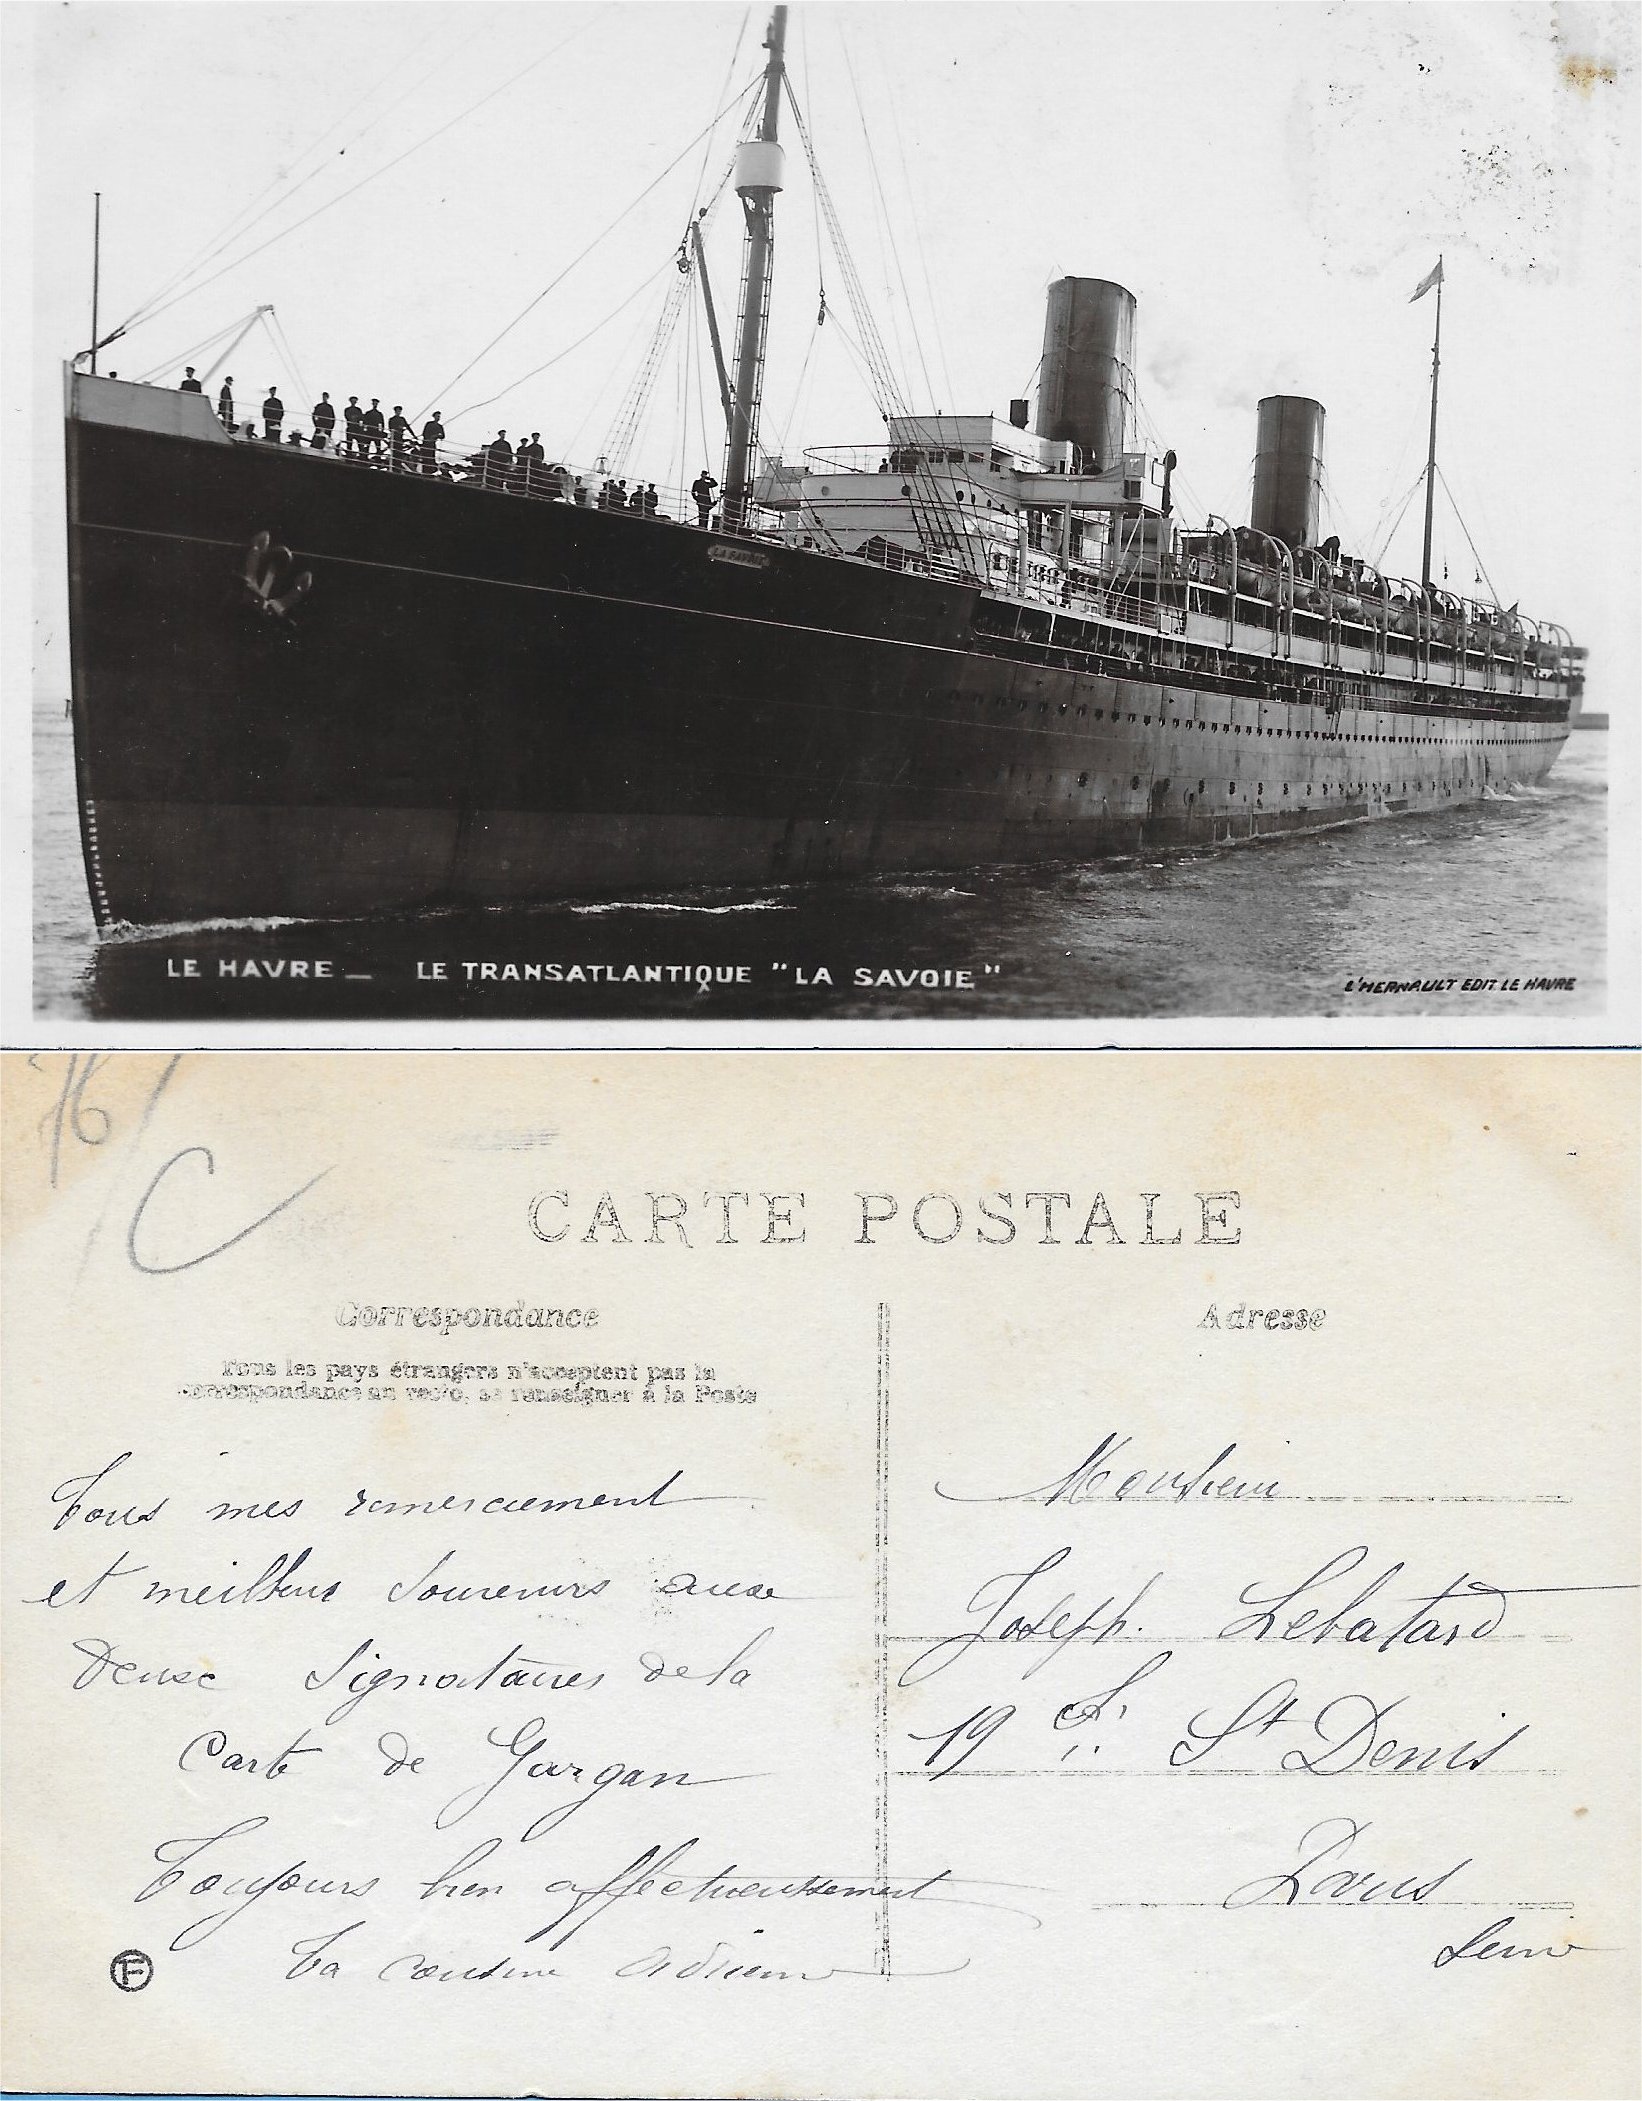 LA SAVOIE
LE HAVRE _ LE TRANSATLANTIQUE "LA SAVOIE"
L'HERNAULT EDIT. LE HAVRE
76
C
CARTE POSTALE
Correspondance
Tous les pays étrangers n'acceptent pas la
correspondance au recto, se renseigner à la Poste
Tous mes remerciement
et meilleurs souvenirs auxe
deuxe signataires de la
Carte de Gargan
Toujours bien affectueusement
Ta cousine Adrienne
Adresse
Monsieur
Joseph. Lebatard
19 St Denis
Paris
Seine